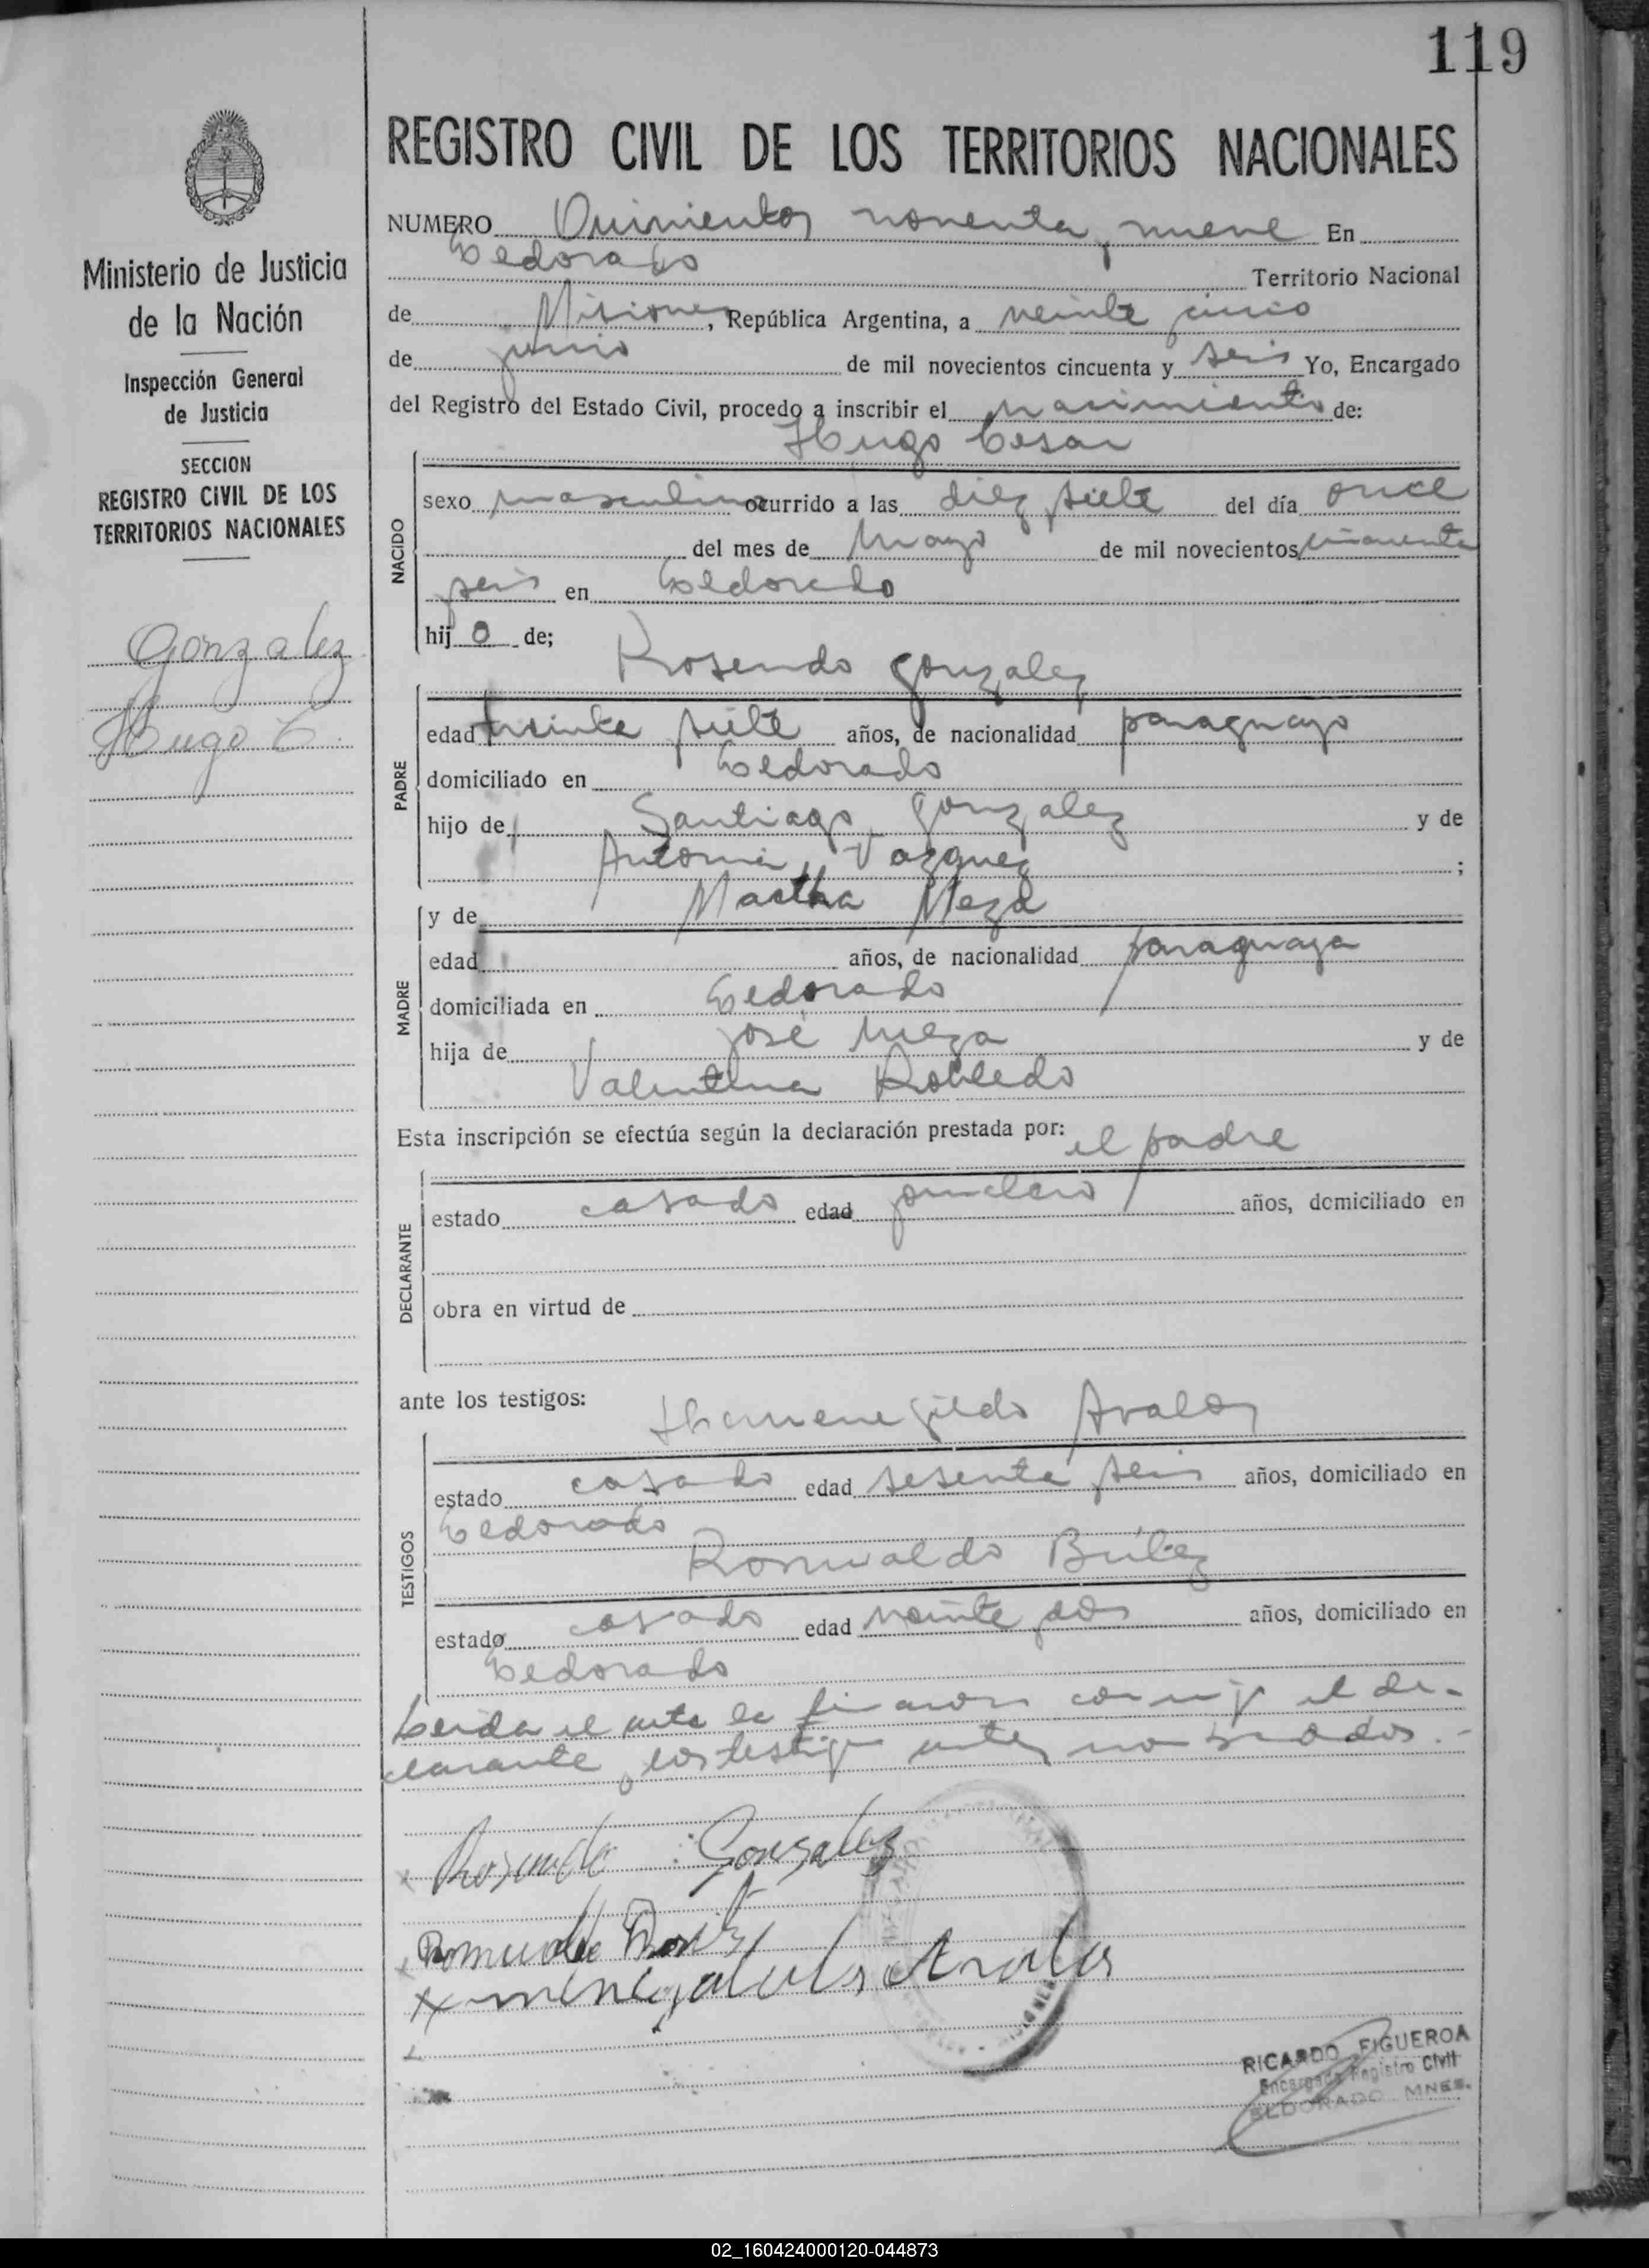 119
REGISTRO CIVIL DE LOS TERRITORIOS NACIONALES
Ministerio de Justicia
de la Nación
Inspección General
de Justicia
SECCION
REGISTRO CIVIL DE LOS
TERRITORIOS NACIONALES
Gonzalez
Hugo C.
NUMERO Quinientos noventa y nueve En
Eldorado Territorio Nacional
de Misiones, República Argentina, a veinte cinco
de junio de mil novecientos cincuenta y seis Yo, Encargado
del Registro del Estado Civil, procedo a inscribir el nacimiento de:
Hugo Cesar
NACIDO
sexo masculino ocurrido a las diez siete del día once
del mes de Mayo de mil novecientos cincuenta
seis en Eldorado
hij o de;
Rosendo Gonzalez
PADRE
edad treinta siete años, de nacionalidad paraguayo
domiciliado en Eldorado
hijo de Santiago Gonzalez y de
Antonia Vazquez ;
MADRE
y de Martha Meza
edad años, de nacionalidad paraguaya
domiciliada en Eldorado
hija de José Meza y de
Valentina Robledo
Esta inscripción se efectúa según la declaración prestada por: el padre
DECLARANTE
estado casado edad años, domiciliado en
obra en virtud de
ante los testigos:
Hermenegildo Avalos
TESTIGOS
estado casado edad sesenta seis años, domiciliado en
Eldorado
Romualdo Brítez
estado casado edad veinte dos años, domiciliado en
Eldorado
Leida el acta la firaron conmigo el de-
clarante y los testigos antes nombrados.-
Rosendo Gonsalez
Romualdo
Avalos
RICARDO FIGUEROA
Encargado Registro Civil
ELDORADO MNES.
02_160424000120-044873